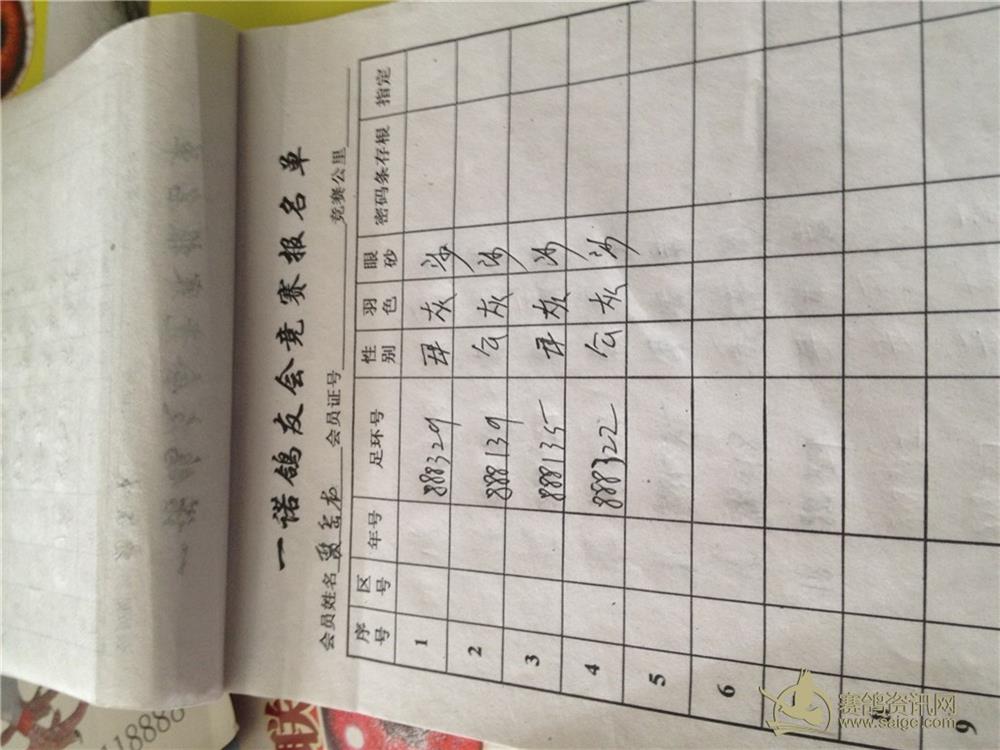 一诺鸽友会竞赛报名单
会员姓名 会员证号 竞赛公里
序号 区号 年号 足环号 性别 羽色 眼砂 密码条存根 指定
1 888329 灰 沙
2 888139 公 灰 沙
3 888135 灰 沙
4 888322 公 灰 沙
5
6
9
118888
联
赛鸽资讯网
www.saige.com